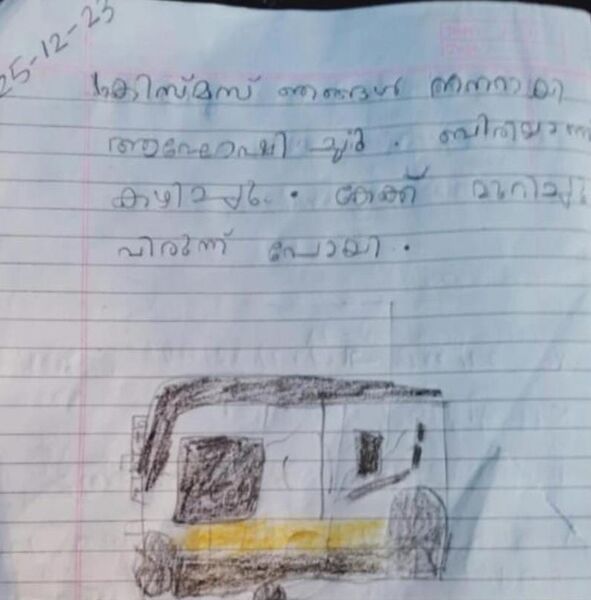 25-12-23
ക്രിസ്മസ് ഞങ്ങൾ നന്നായി
ആഘോഷിച്ചു. ബിരിയാണി
കഴിച്ചു. കേക്ക് മുറിച്ചു
വിരുന്ന് പോയി.